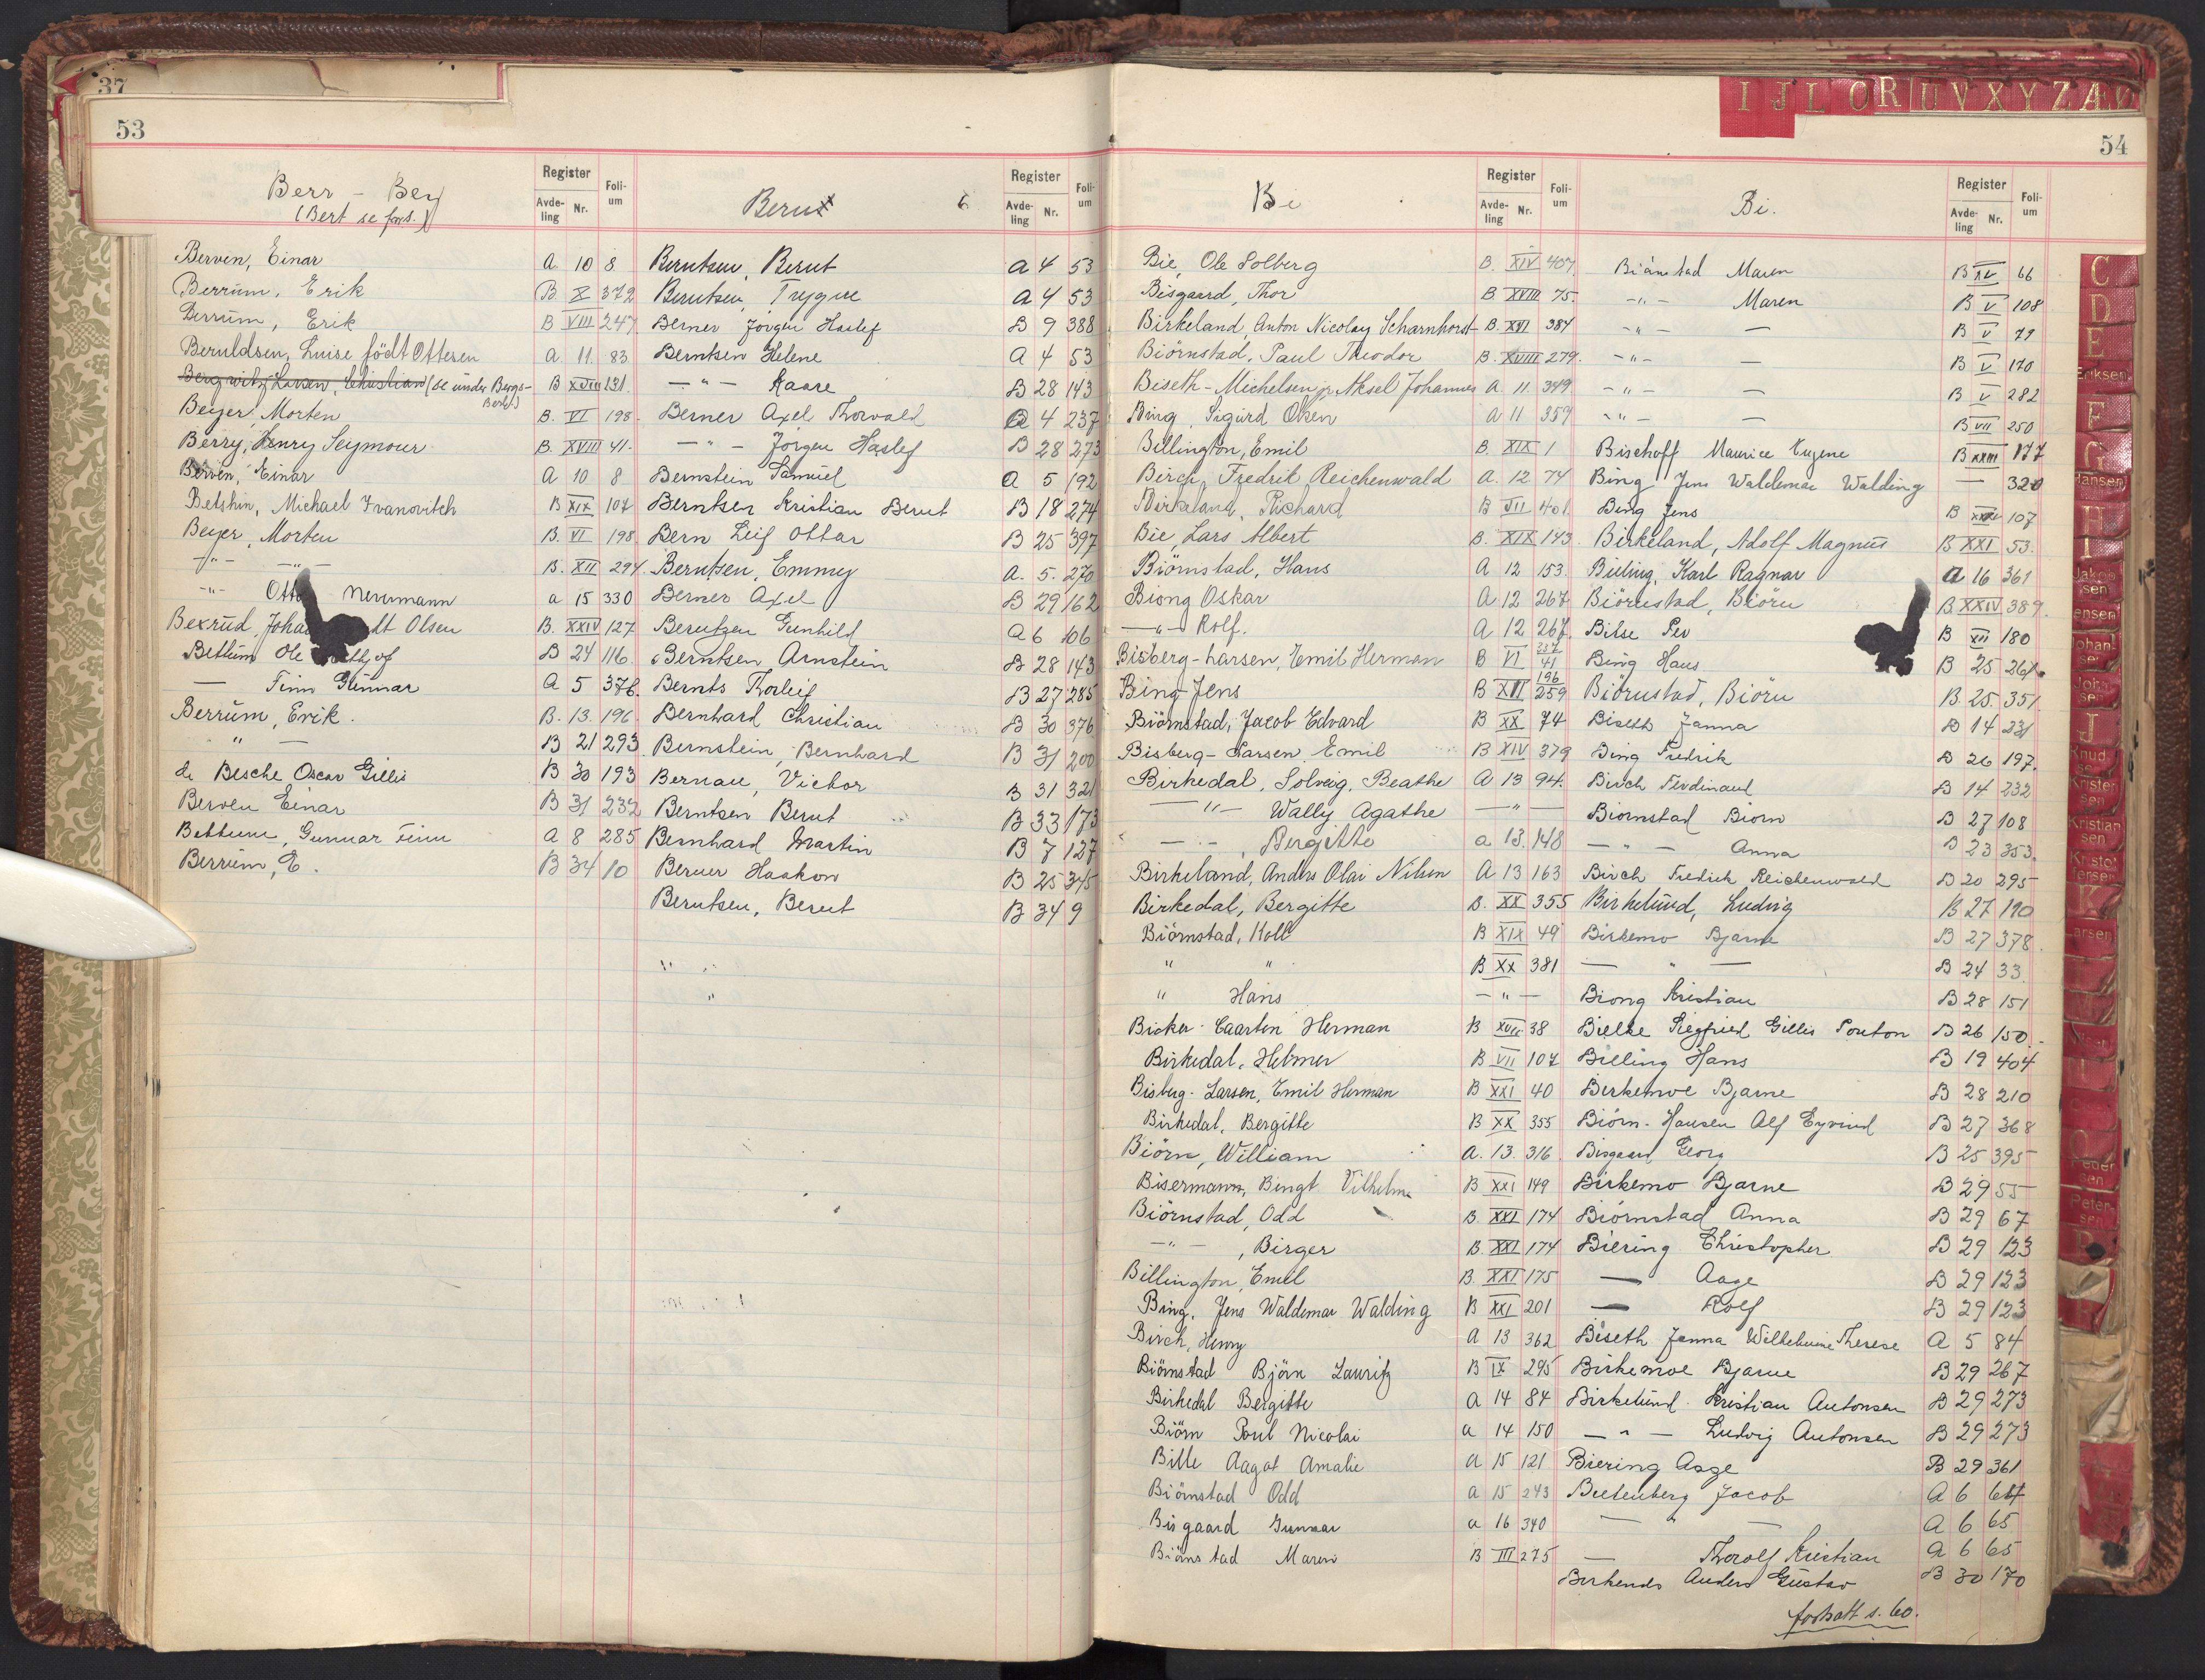 37
53
Berr - Bey
(Bert se fors.)
Register
Avde-
ling
Nr.
Foli-
um
Berven, Einar A 10 8
Berrum, Erik B. X 372
Berrum, Erik B VIII 247
Beruldsen, Luise födt Ottesen A. 11. 83
Bergwitz Larsen, Christian (se under Bergs- B XVIII 131.
Beyer, Morten B. VI 198.
Berry, Henry Seymour B. XVIII 41.
Berven, Einar A 10 8
Betshin, Michael Ivanovitch B XIX 107
Beyer, Morten B. VI 198
-"- -"- B. XII 294.
-"- Otto Nevermann a 15 330
Bexrud, Johan dt Olsen B. XXIV 127
Bettum Ole B 24 116.
— Finn Gunnar A 5 376.
Berrum, Erik. B. 13. 196
" — B 21 293
de Besche Oscar Gillis B 30 193
Berven Einar B 31 232
Bettum, Gunnar Finn A 8 285
Berrum, E. B 34 10
Bernt
6
Register
Avde-
ling
Nr.
Foli-
um
Berntsen, Bernt A 4 53
Berntsen, Trygve A 4 53
Berner Jörgen Haslef B 9 388
Berntsen Helene A 4 53
—"— Kaare B 28 143
Berner Axel Thorvald 4 237
—"— Jörgen Haslef B 28 273
Bernstein Samuel A 5 192
Berntsen Kristian Bernt B 18 274
Bern Leif Ottar B 25 397
Berntsen, Emmy A. 5. 270
Berner Axel B 29 162
Berntzen Gunhild A 6 106
Berntsen Arnstein B 28 143
Bernts Thorleif B 27 285
Bernhard Christian B 30 376
Bernstein, Bernhard B 31 200
Bernau, Victor B 31 321
Berntsen Bernt B 33 173
Bernhard Martin B 7 127
Berner Haakon B 25 345
Berntsen, Bernt B 34 9
I J L O R U V X Y Z Æ Ø
54
Bi
Register
Avde-
ling
Nr.
Foli-
um
Bie, Ole Solberg B. XIV 407
Bisgaard, Thor B. XVIII 75.
Birkeland, Anton Nicolay Scharnhorst B. XVI 384
Biörnstad, Paul Theodor B. XVIII 279.
Biseth-Michelsen jr. Aksel Johannes A. 11. 349
Bing, Sigurd Oken A 11 359
Billington, Emil B. XIX 1
Birch, Fredrik Reichenwald A. 12 74
Birkeland, Richard B VII 401
Bie, Lars Albert B. XIX 143
Biörnstad, Hans A 12 153.
Biong Oskar A 12 267
—"— Rolf. A 12 267
Bisberg-Larsen, Emil Herman B VI 237 41
Bing Jens B XVI 196 259
Biörnstad, Jacob Edvard B XX 74
Bisberg-Larsen Emil B XIV 379
Birkedal, Solveig, Beathe A 13 94.
—"— Wally Agathe —"—
—"—, Bergitte a 13. 148
Birkeland, Anders Olai Nilsen A 13 163
Birkedal, Bergitte B. XX 355
Biörnstad, Koll B XIX 49
" " B XX 381
" Hans —"—
Bicker-Caarten Herman B XVII 38
Birkedal, Helmer B VII 107
Bisberg-Larsen, Emil Herman B XXI 40
Birkedal, Bergitte B XX 355
Biörn, William A. 13. 316
Bisermann, Bingt Vilhelm B XXI 149
Biörnstad, Odd B. XXI 174
—"—, Birger B. XXI 174
Billington, Emil B. XXI 175
Bing, Jens Waldemar Walding B XXI 201
Birch, Henry A 13 362
Biörnstad Björn Lauritz B IX 295
Birkedal Bergitte A 14 84
Biörn Paul Nicolai a 14 150
Bille Aagot Amalie A 15 121
Biörnstad Odd a 15 243
Bisgaard Gunnar a 16 340
Biörnstad Maren B III 275
Bi.
Register
Avde-
ling
Nr.
Foli-
um
Biörnstad Maren B XV 66
-"- Maren B V 108
-"- — B V 79
-"- — B V 170
-"- — B V 282
-"- — B VII 250
Bischoff Maurice Eugene B XXIII 177
Bing Jens Waldemar Walding — 320
Bing Jens B 107
Birkeland, Adolf Magnus B XXI 53.
Billing, Karl Ragnar A 16 361
Biörnstad, Biörn B. XXIV 389.
Bilse Per B XII 180
Bing Hans B 25 261.
Biörnstad, Biörn B. 25. 351
Biseth Janna B 14 231
Bing Fredrik B 26 197.
Birch Ferdinand B 14 232
Biornstad Biorn B 27 108
—"— Anna B 23 353.
Birch Fredrich Reichenwald B 20 295
Birkelund, Ludvig B 27 190
Birkemo Bjarne B 27 378.
— " — B 24 33
Biong Kristian B 28 151
Bielke Siegfried Gillis Ponton B 26 150.
Billing Hans B 19 404
Birkemoe Bjarne B 28 210
Biörn-Hansen Alf Eyvind B 27 368
Bisgaard Georg B 25 395
Birkemo Bjarne B 29 55
Biörnstad Anna B 29 67
Biering Christopher B 29 123
— Aage B 29 123
— Rolf B 29 123
Biseth Janna Wilhelmine Therese A 5 84
Birkemoe Bjarne B 29 267
Birkelund Kristian Antonsen B 29 273
—"— Ludvig Antonsen B 29 273
Biering Aage B 29 361
Bietenberg Jacob A 6 64
— " — A 6 65
— Thorolf Kristian A 6 65
Anders Gustav B 30 170
fortsatt s. 60.
C
D
E
Eriksen
F
G
Hansen
H
I
Jakob
sen
Jensen
Johan-
sen
John-
sen
J
Knud
sen
Krister
sen
Kristian
sen
Kristof
fersen
K
Larsen
Peder
sen
Peter-
sen